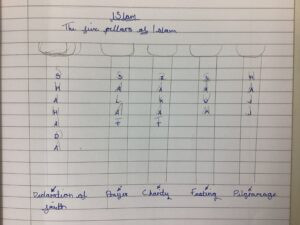 Islam
The five pillars of Islam
SHAHADA
SALAT
ZAKAT
SAWM
HAJJ
Declaration of
faith
Prayer
Charity
Fasting
Pilgramage